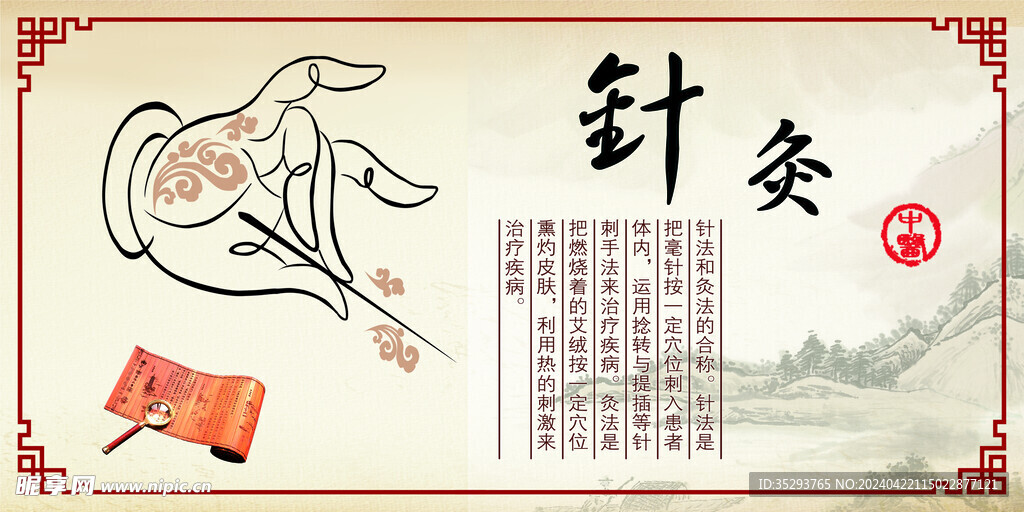 針灸
中醫
针法和灸法的合称。针法是
把毫针按一定穴位刺入患者
体内，运用捻转与提插等针
刺手法来治疗疾病。灸法是
把燃烧着的艾绒按一定穴位
熏灼皮肤，利用热的刺激来
治疗疾病。
昵享网 www.nipic.cn
ID:35293765 NO:20240422115022877121